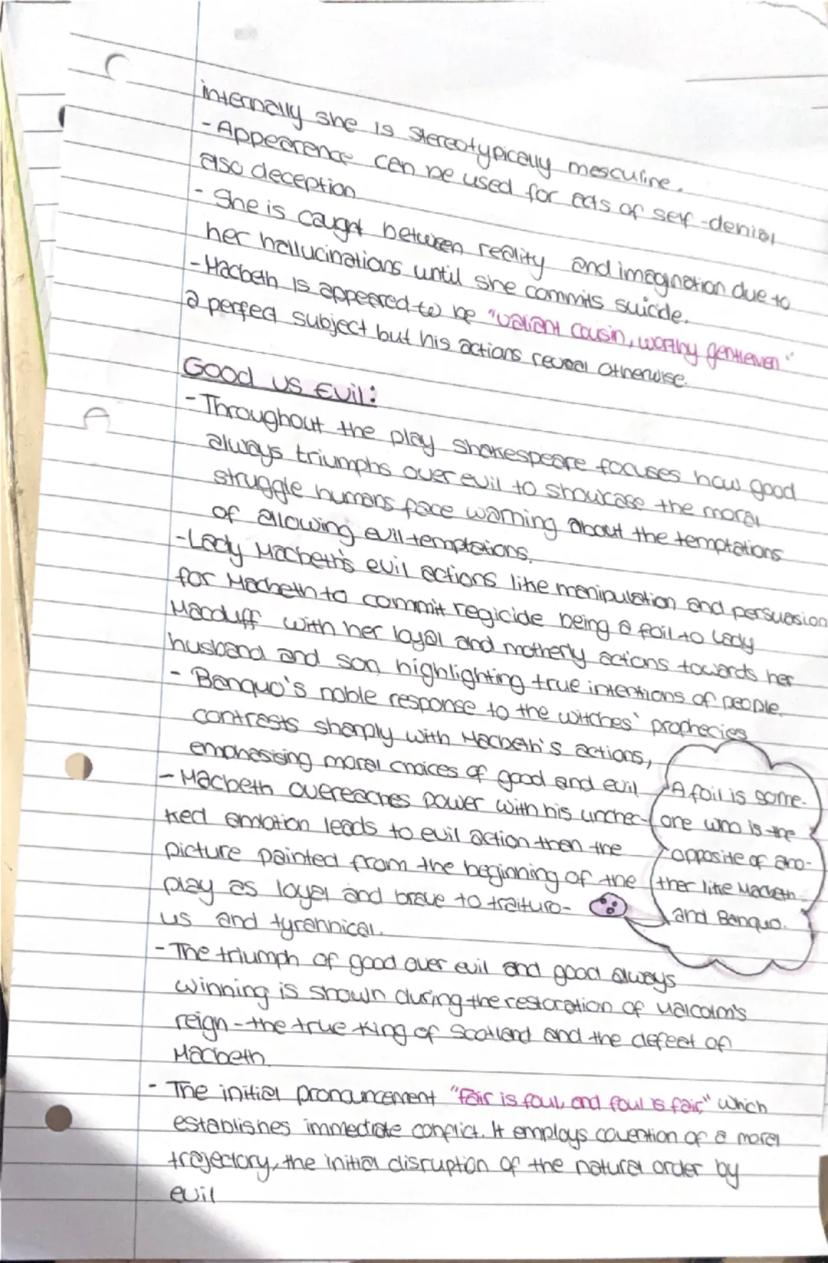 internally she is stereotypically masculine.
- Appearence can be used for acts of self-denial
also deception
- She is caught between reality and imagination due to
her hallucinations until she commits suicide.
- Macbeth is appeared to be "valiant cousin, worthy gentleven"
a perfect subject but his actions reveal otherwise.
Good vs Evil:
- Throughout the play shakespeare focuses how good
always triumphs over evil to showcase the moral
struggle humans face warning about the temptations
of allowing evil temptations.
- Lady Macbeth's evil actions like manipulation and persuasion
for Macbeth to commit regicide being a foil to Lady
Macduff with her loyal and motherly actions towards her
husband and son, highlighting true intentions of people.
- Banquo's noble response to the witches' prophecies
contrasts sharply with Macbeth's actions,
emphasising moral choices of good and evil
- Macbeth overreaches power with his unchec-
ked amotion leads to evil action then the
picture painted from the beginning of the
play as loyal and brave to traituro-
us and tyrannical.
A foil is some-
one who is the
opposite of ano-
ther like Macbeth
and Banquo.
- The triumph of good over evil and good always
winning is shown during the restoration of Malcolm's
reign - the true king of Scotland and the defeat of
Macbeth.
- The initial pronouncement "fair is foul, and foul is fair" which
establishes immediate conflict. It employs covention of a moral
trajectory, the initial disruption of the natural order by
evil